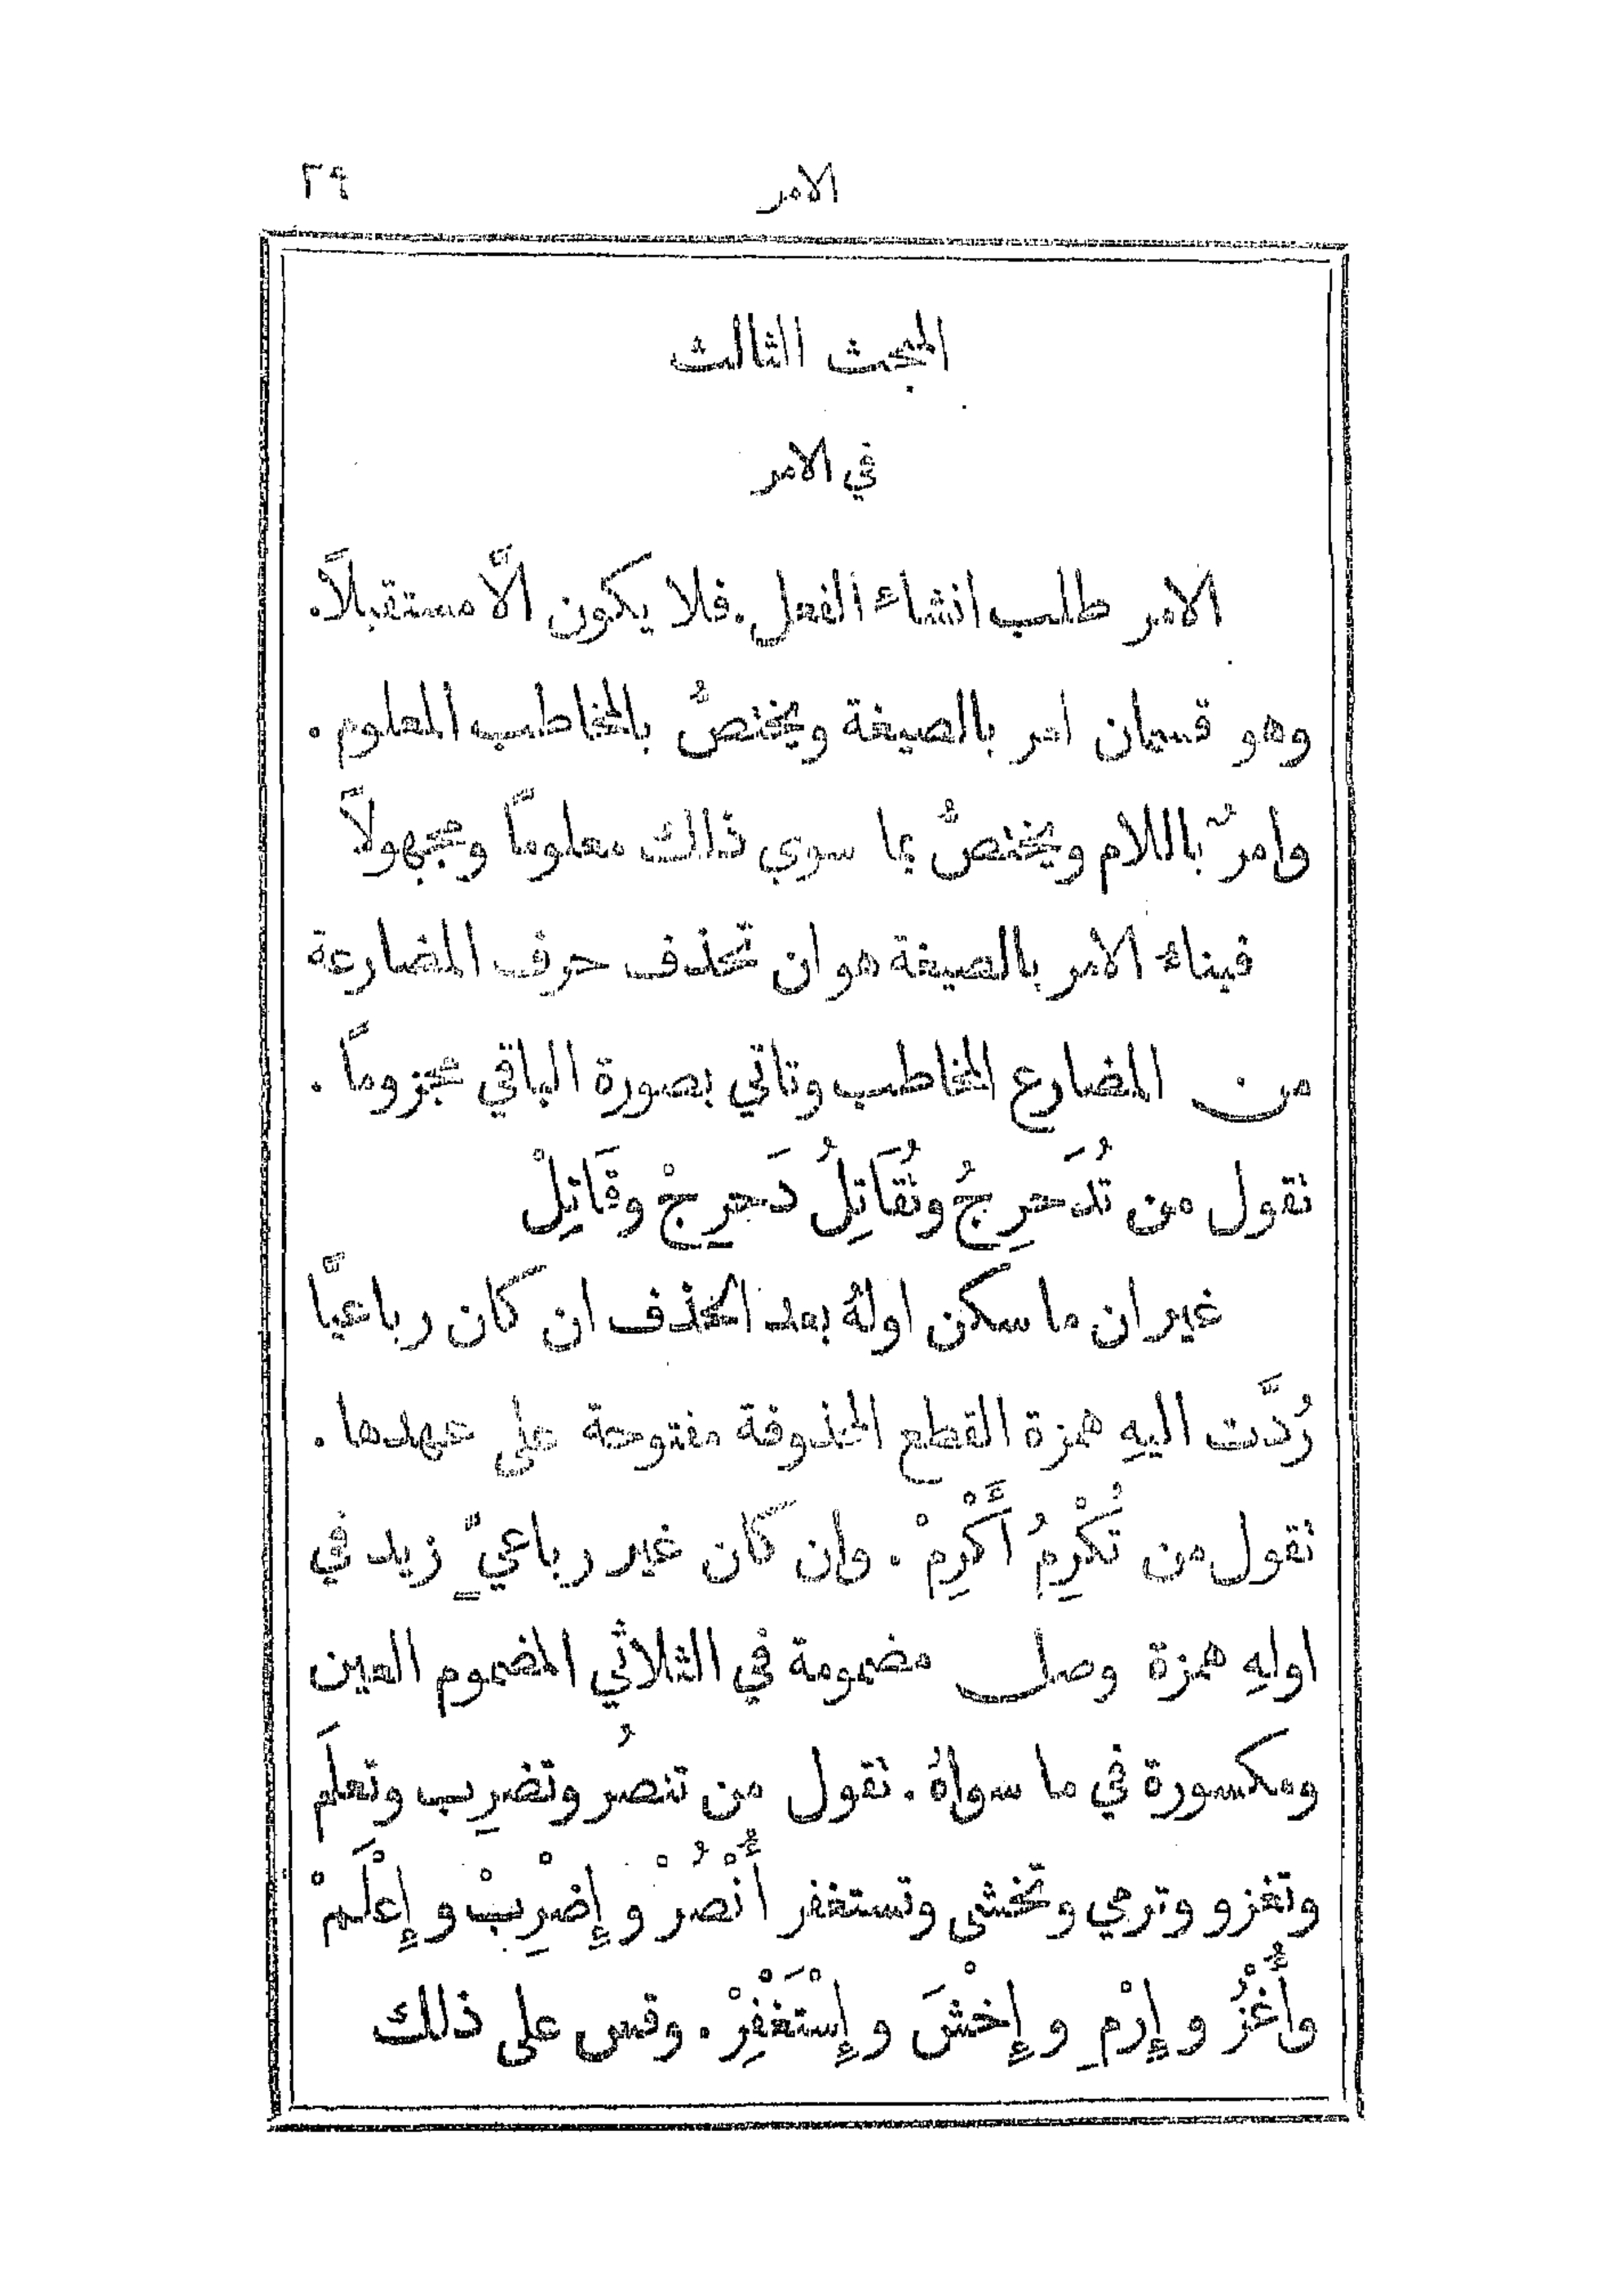 الامر ٢٩
المبحث الثالث
في الامر
الامر طلب انشاء الفعل. فلا يكون الَّا مستقبلاً.
وهو قسمان امر بالصيغة ويختصُّ بالمخاطب المعلوم.
وامرٌ باللام ويختصُّ بما سوي ذلك معلوماً ومجهولاً
فبناء الامر بالصيغة هو ان تحذف حرف المضارعة
من المضارع المخاطب وتاتي بصورة الباقي مجزوماً.
تقول من تُدَحرِجُ وتُقَاتِلُ دَحرِجْ وقَاتِلْ
غير ان ما سكن اولهُ بعد الحذف ان كان رباعيًّا
رُدَّت اليهِ همزة القطع المحذوفة مفتوحة على عهدها.
تقول من تُكْرِمُ أَكْرِمْ. وان كان غير رباعيٍّ زيد في
اولهِ همزة وصل مضمومة في الثلاثي المضموم العين
ومكسورة في ما سواهُ. تقول من تنصُر وتضرِب وتعلَم
وتغزو وترمي وتخشى وتستغفر أُنْصُرْ وإِضْرِبْ وإِعْلَمْ
وأُغْزُ وإِرْمِ وإِخْشَ وإِسْتَغْفِرْ. وقس على ذلك